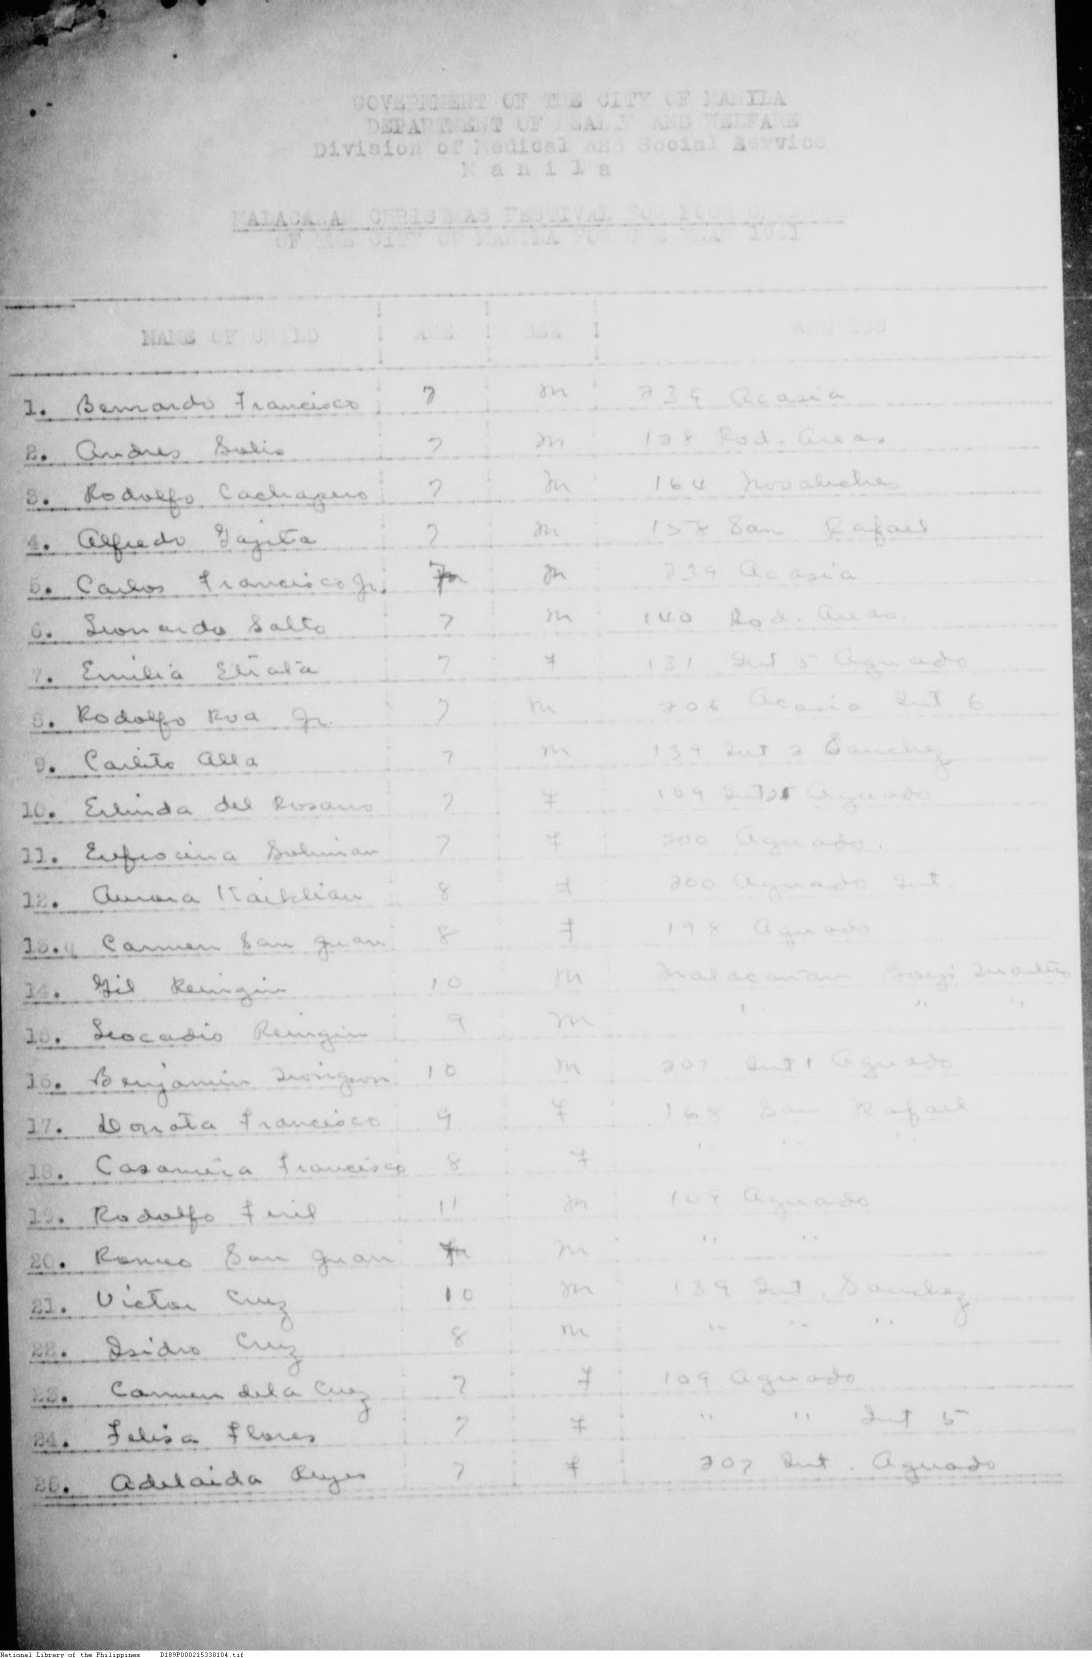 GOVERNMENT OF THE CITY OF MANILA
DEPARTMENT OF HEALTH AND WELFARE
Division of Medical and Social Service
M a n i l a
MALACAÑAN CHRISTMAS FESTIVAL FOR POOR
OF THE CITY OF MANILA FOR THE YEAR 1941
NAME OF CHILD AGE SEX ADDRESS
1. Bernardo Francisco 7 M 739 Acasia
2. Andres Solis 7 M 128 Rod. Arcas
3. Rodolfo Cachapero 7 M 164 Novaliches
4. Alfredo Gajita 7 M 158 San Rafael
5. Carlos Francisco Jr. 7 M 739 Acasia
6. Leonardo Salto 7 M 140 Rod. Arcas
7. Emilia Etiata 7 F 131 Int 5 Aguado
8. Rodolfo Rua Jr. 7 M 706 Acasia Int 6
9. Carlito Alla 7 M 139 Int 2 Sanchez
10. Erlinda del Rosario 7 F 109 Aguado
11. Eufrocina Soliman 7 F 200 Aguado.
12. Aurora 8 F 200 Aguado Int.
13. Carmen San Juan 8 F 198 Aguado
14. Gil Reingin 10 M Malacañan
15. Leocadio Reingin 9 M " " "
16. Benjamin 10 M 207 Int 1 Aguado
17. Donata Francisco 9 F 168 San Rafael
18. Casamira Francisco 8 F " " "
19. Rodolfo Firil 11 M 109 Aguado
20. Romeo San Juan 7 M " "
21. Victor Cruz 10 M 139 Int. Sanchez
22. Isidro Cruz 8 M " " "
23. Carmen dela Cruz 7 F 109 Aguado
24. Felisa Flores 7 F " " Int 5
25. Adelaida Reyes 7 F 207 Int. Aguado
National Library of the Philippines D189P000215338104.tif